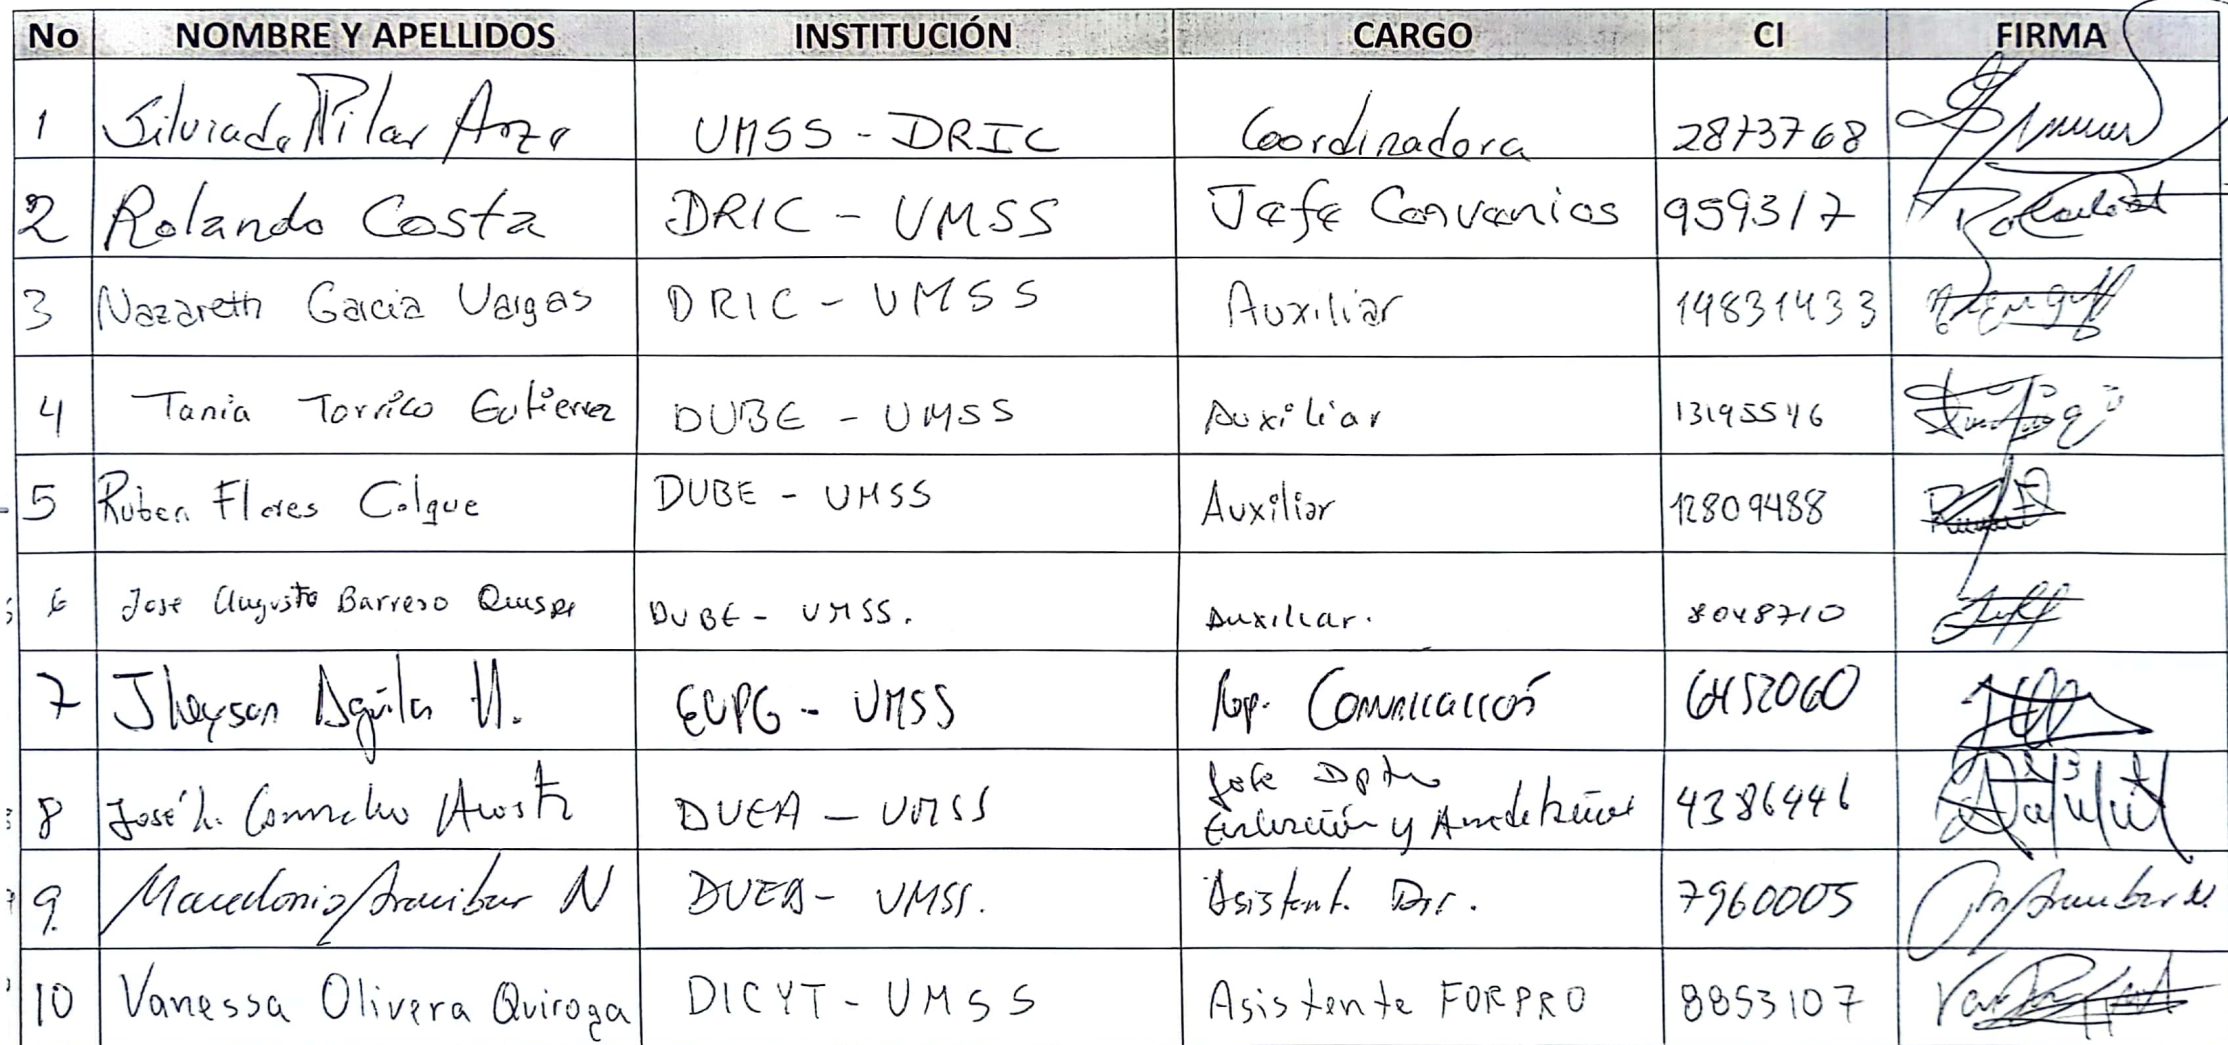 No NOMBRE Y APELLIDOS INSTITUCIÓN CARGO CI FIRMA
1 Silvia del Pilar Arze UMSS - DRIC Coordinadora 2873768
2 Rolando Costa DRIC - UMSS Jefe Convenios 959317
3 Nazareth Gacia Vargas DRIC - UMSS Auxiliar 14831433
4 Tania Torrico Gutierrez DUBE - UMSS Auxiliar 13195546
5 Ruben Flores Colque DUBE - UMSS Auxiliar 12809488
6 Jose Augusto Barreso Quispe DUBE - UMSS. Auxiliar. 8048710
7 Jheyson Aguilar EUPG - UMSS Comunicación 6452060
8 José L. Camacho DUEA - UMSS Jefe Dpto Evaluación y 4386446
9. Macedonio Aranibar N DUEA - UMSS. Asistent. Dir. 7960005
10 Vanessa Olivera Quiroga DICYT - UMSS Asistente FORPRO 8853107